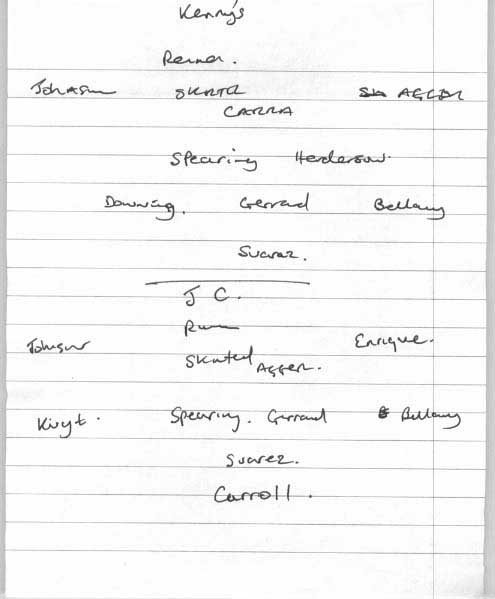 Kenny's
Reina.
Johnson SKRTR AGGER
CARRA
Spearing Henderson.
Downing. Gerrard Bellamy
Suarez.
J C.
Johnson Enrique.
Skrtel AGGER.
Kuyt. Spearing. Gerrard Bellamy
Suarez.
Carroll.